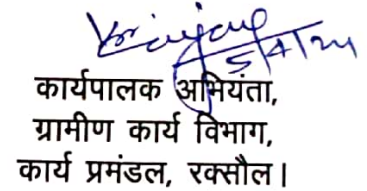 5/4/24
कार्यपालक अभियंता,
ग्रामीण कार्य विभाग,
कार्य प्रमंडल, रक्सौल।